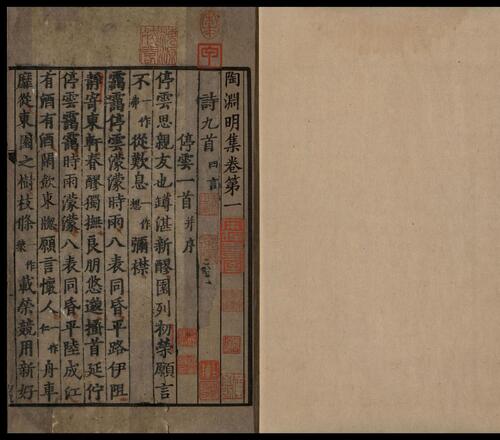 陶淵明集卷第一
詩九首 四言
停雲一首 并序
停雲思親友也罇湛新醪園列初榮願言
不一作弗從歎息一作想彌襟
靄靄停雲濛濛時雨八表同昏平路伊阻
靜寄東軒春醪獨撫良朋悠邈搔首延佇
停雲靄靄時雨濛濛八表同昏平陸成江
有酒有酒閒飲東牕願言懷人一作仁舟車
靡從東園之樹枝條一作載榮競用新好